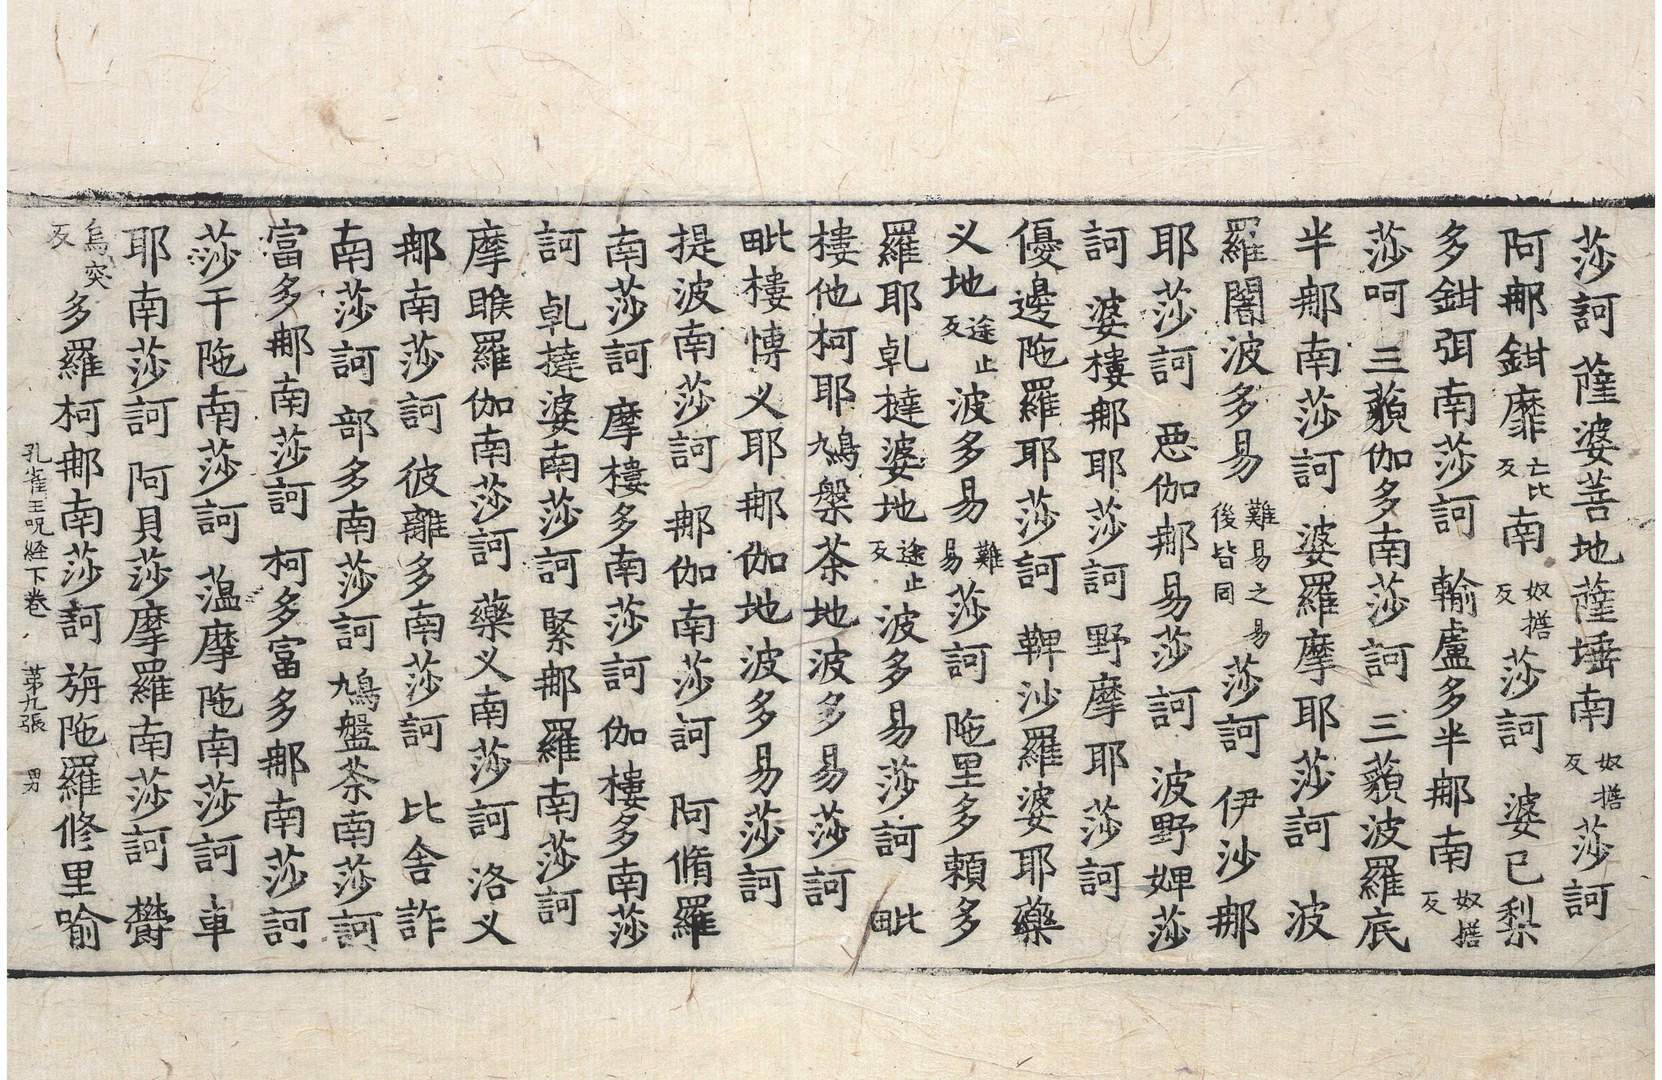 莎訶 薩婆菩地薩埵南奴搭反莎訶
阿那鉗靡亡比反南奴搭反莎訶 婆已梨
多鉗弭南莎訶 輸盧多半那南奴搭反
莎呵 三藐伽多南莎訶 三藐波羅底
半那南莎訶 婆羅摩耶莎訶 波
羅闍波多易難易之易後皆同莎訶 伊沙那
耶莎訶 惡伽那易莎訶 波野婢莎
訶 婆樓那耶莎訶 野摩耶莎訶
優邊陁羅耶莎訶 鞞沙羅婆耶藥
义地途止反波多易難易莎訶 陁里多頼多
羅耶乹撻婆地途止反波多易莎訶 毗
樓他柯耶鳩槃茶地波多易莎訶
毗樓博义耶那伽地波多易莎訶
提波南莎訶 那伽南莎訶 阿脩羅
南莎訶 摩樓多南莎訶 伽樓多南莎
訶 乹撻婆南莎訶 緊那羅南莎訶
摩睺羅伽南莎訶 藥义南莎訶 洛义
那南莎訶 彼離多南莎訶 比舍詐
南莎訶 部多南莎訶 鳩盤茶南莎訶
富多那南莎訶 柯多富多那南莎訶
莎干陁南莎訶 温摩陁南莎訶 車
耶南莎訶 阿貝莎摩羅南莎訶 欝
烏突反多羅柯那南莎訶 旃陁羅修里喻
孔雀王呪経下卷 第九張 男